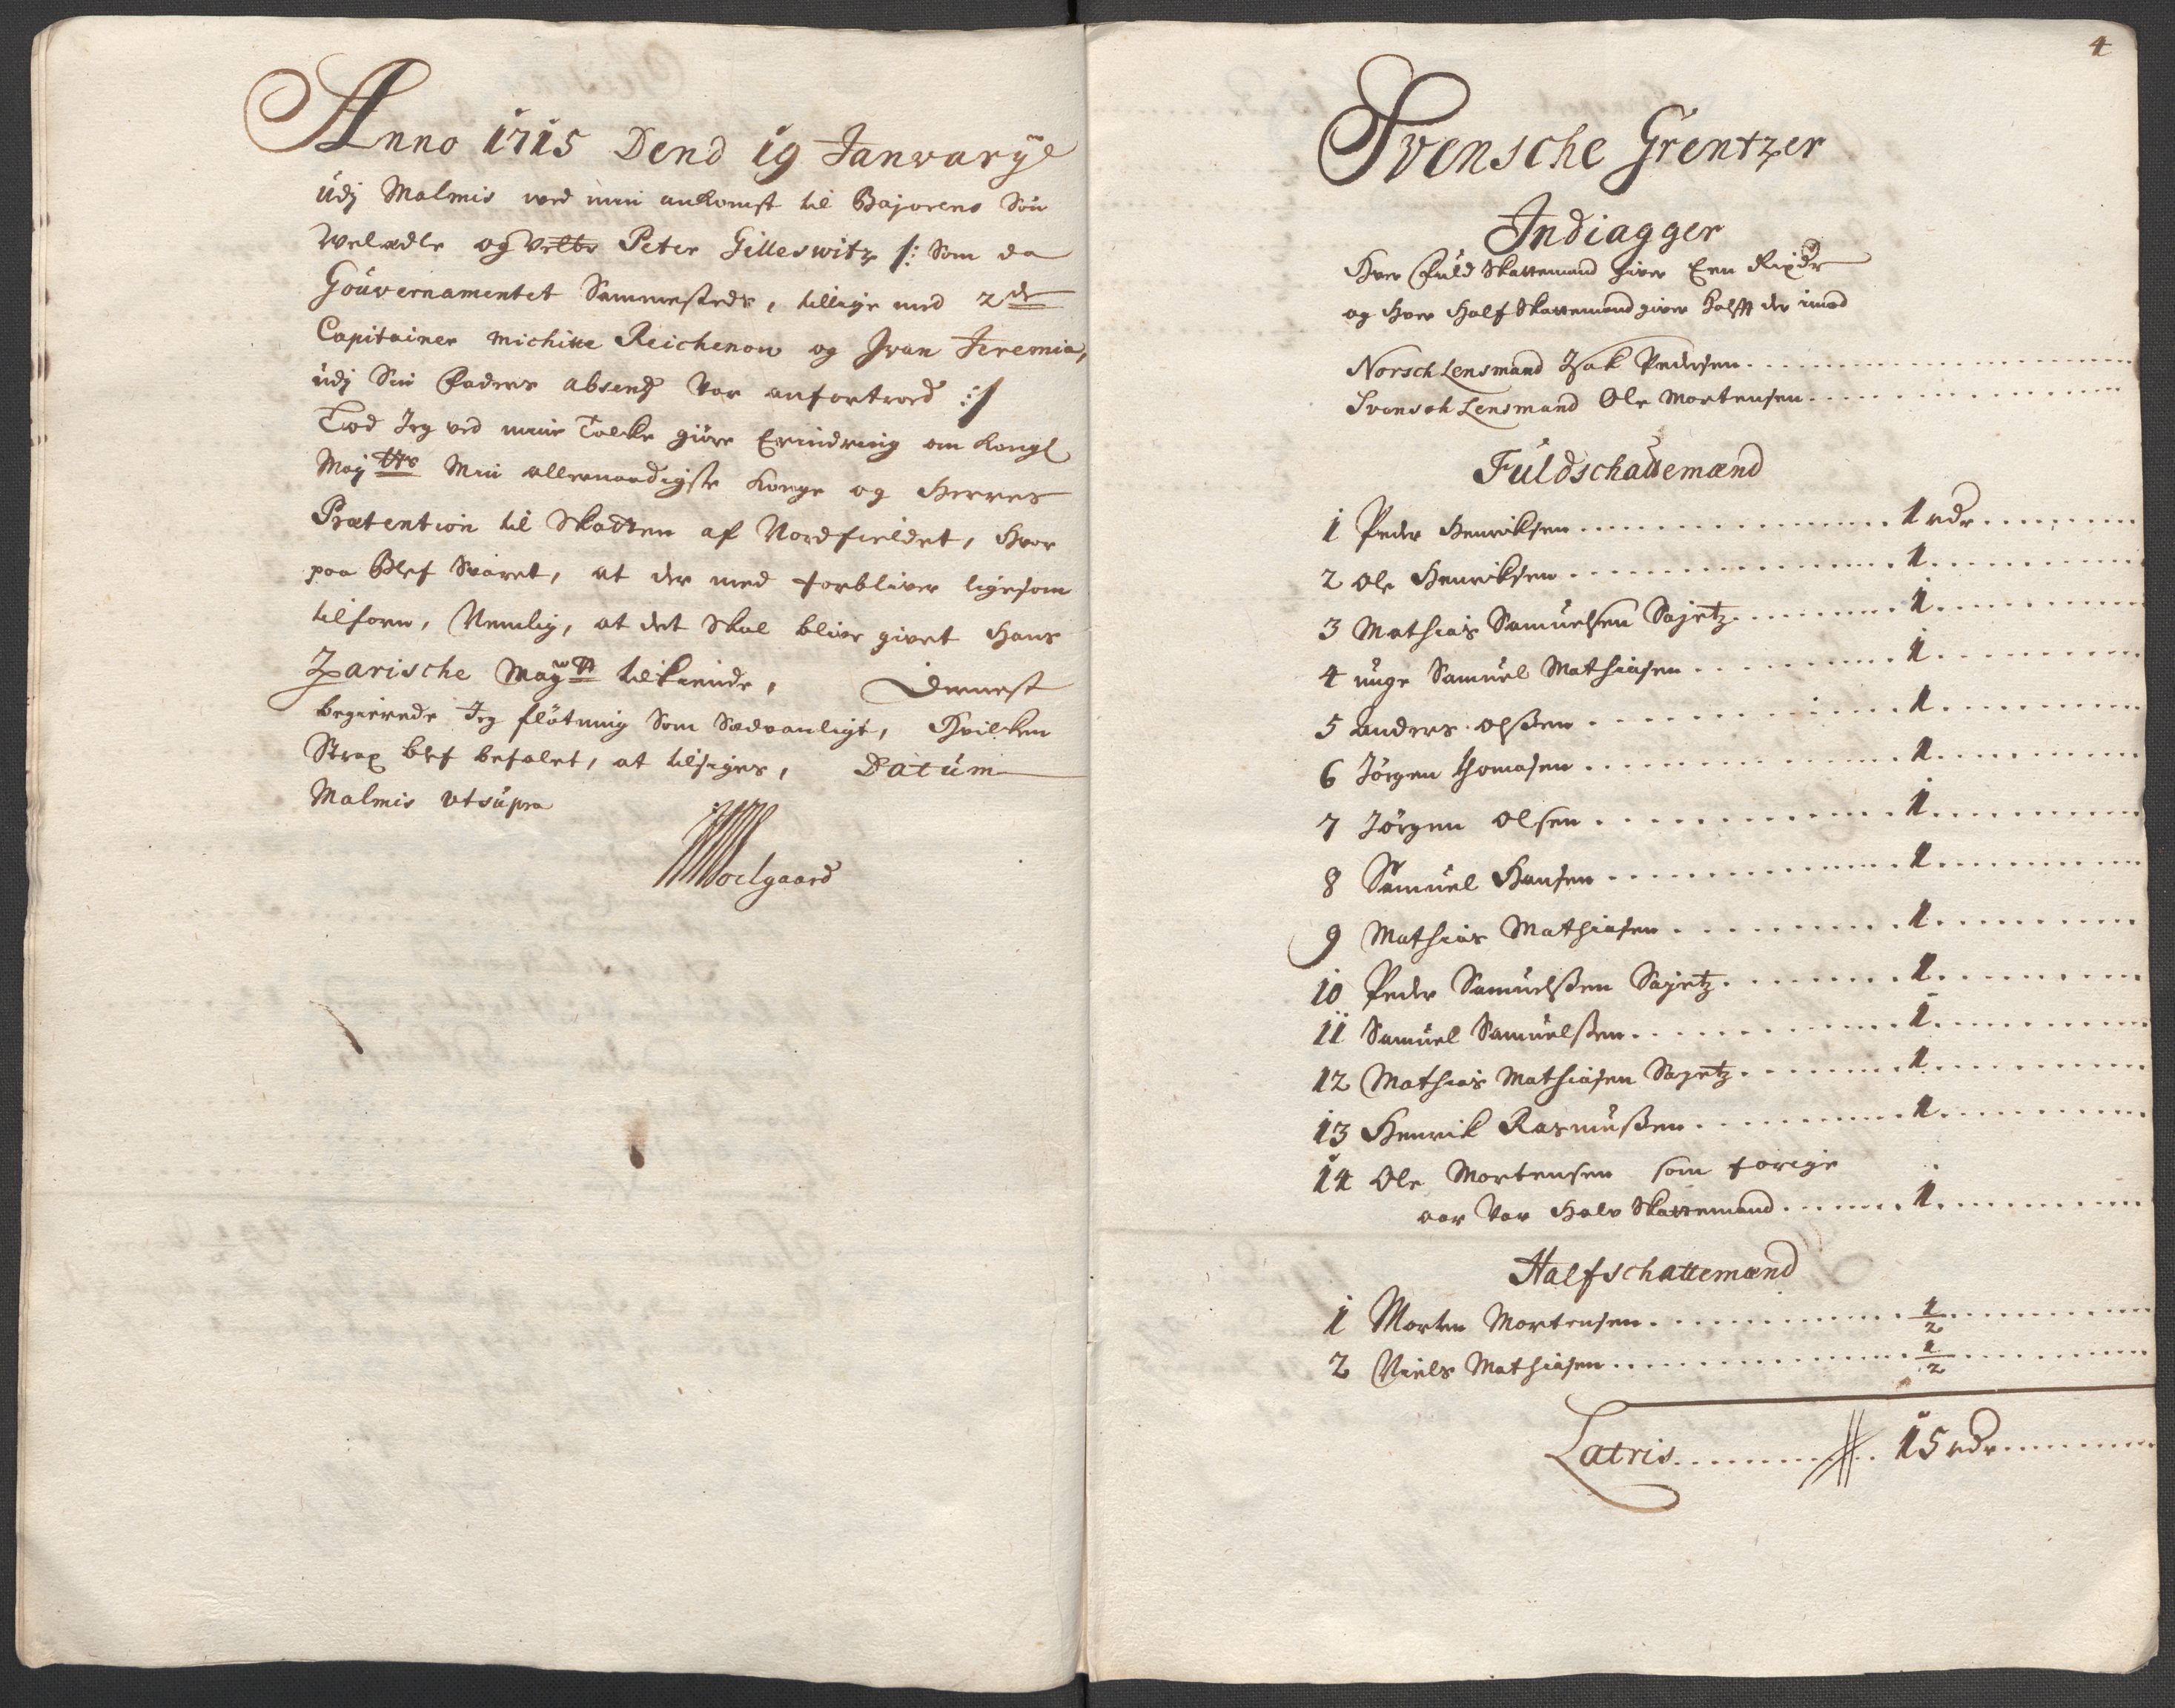 Anno 1715 Dend 19 Janvarÿe
udj Malmis ved min ankomst til Bajorens Søn
Velædle og Velbr Peter Gilleswitz /: Som da
Gouvernamentet Sammesteds, tillige med 2de
Capitainer Michitte Reichenow og Jvan Jeremia,
udj Sin Faders absendz var anfortroed :/
Lod Jeg ved min Tolke giöre Erindring om Kongl
May tts Min allernaadigste Konge og Herres
Prætention til Skatten af Nordfieldet, hvor
paa blef Svaret, at der med forbliver ligesom
tilforn, Nemlig, at det Skal blive givet Hans
Zarische May tt tilkiende, Dernest
begierede Jeg fløtning Som Sædvanligt, hvilken
Strax blef befalet, at tilsiges, Datum
Malmis utsupra
Soelgaard
4
Svensche Grentzer
Indiagger
Hver Fuld Skattemand giver Een Rixdr
og Hver Half Skattemand giver halft der imod
Norsch Lensmand Isak Pedersen
Svensch Lensmand Ole Mortensen
Fuldschattemænd
1 Peder Henriksen 1 rdr
2 Ole Henriksen 1
3 Mathias Samuelsen Sajetz 1
4 unge Samuel Mathiasen 1
5 Anders Olssen 1
6 Jörgen Thomasen 1
7 Jörgen Olsen 1
8 Samuel Hansen 1
9 Mathias Mathiasen 1
10 Peder Samuelssen Sajetz 1
11 Samuel Samuelssen 1
12 Mathias Mathiasen Sajetz 1
13 Henrik Rasmussen 1
14 Ole Mortensen som forige
aar var Halv Skattemand 1
Halfschattemænd
1 Morten Mortensen 1/2
2 Niels Mathiasen 1/2
Latris 15 rdr